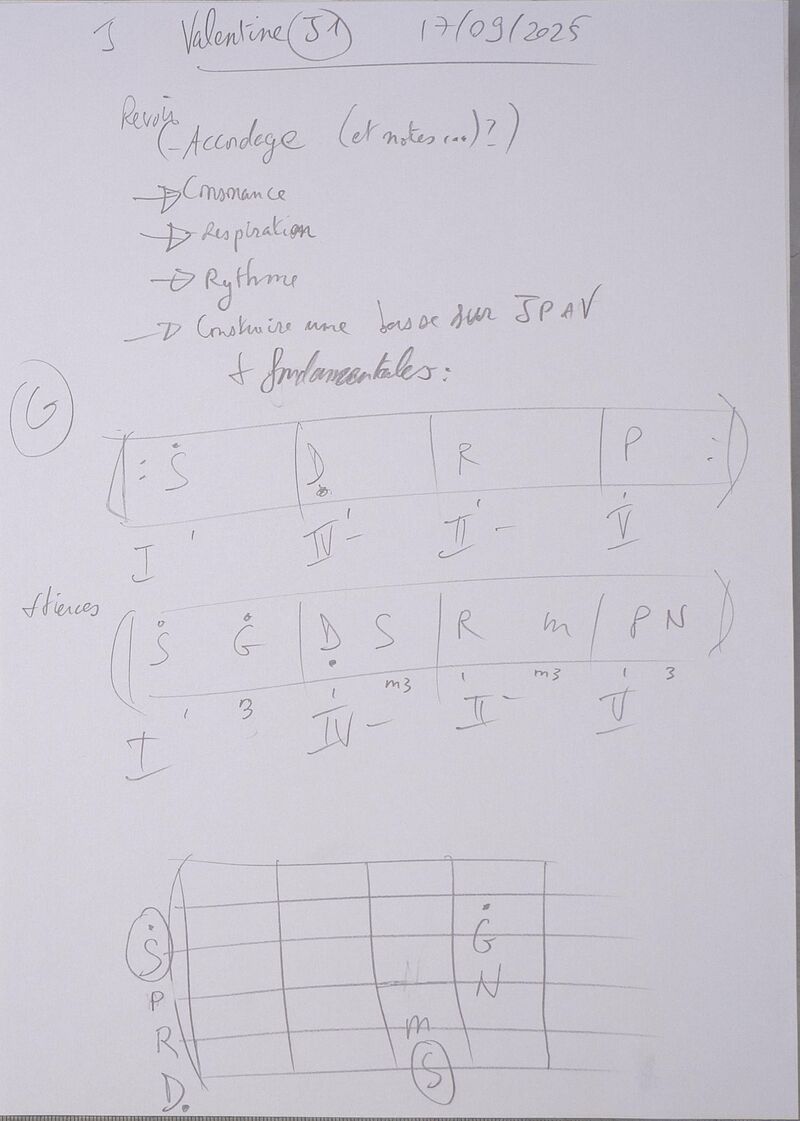 Valentine (J1) 17/09/2025
Revoir
(- Accordage (et notes...)?)
→ Consonance
→ Respiration
→ Rythme
→ Construire une basse sur JPAV
+ fondamentales:
G
(: Ṡ | Ḍ | R | P :)
I 1 IV- 1 II- 1 V 1
+ tierces
( Ṡ Ġ | Ḍ S | R m | P N )
I 1 3 IV- 1 m3 II- 1 m3 V 1 3
Ġ
Ṡ
N
P
m
R
S
Ḍ